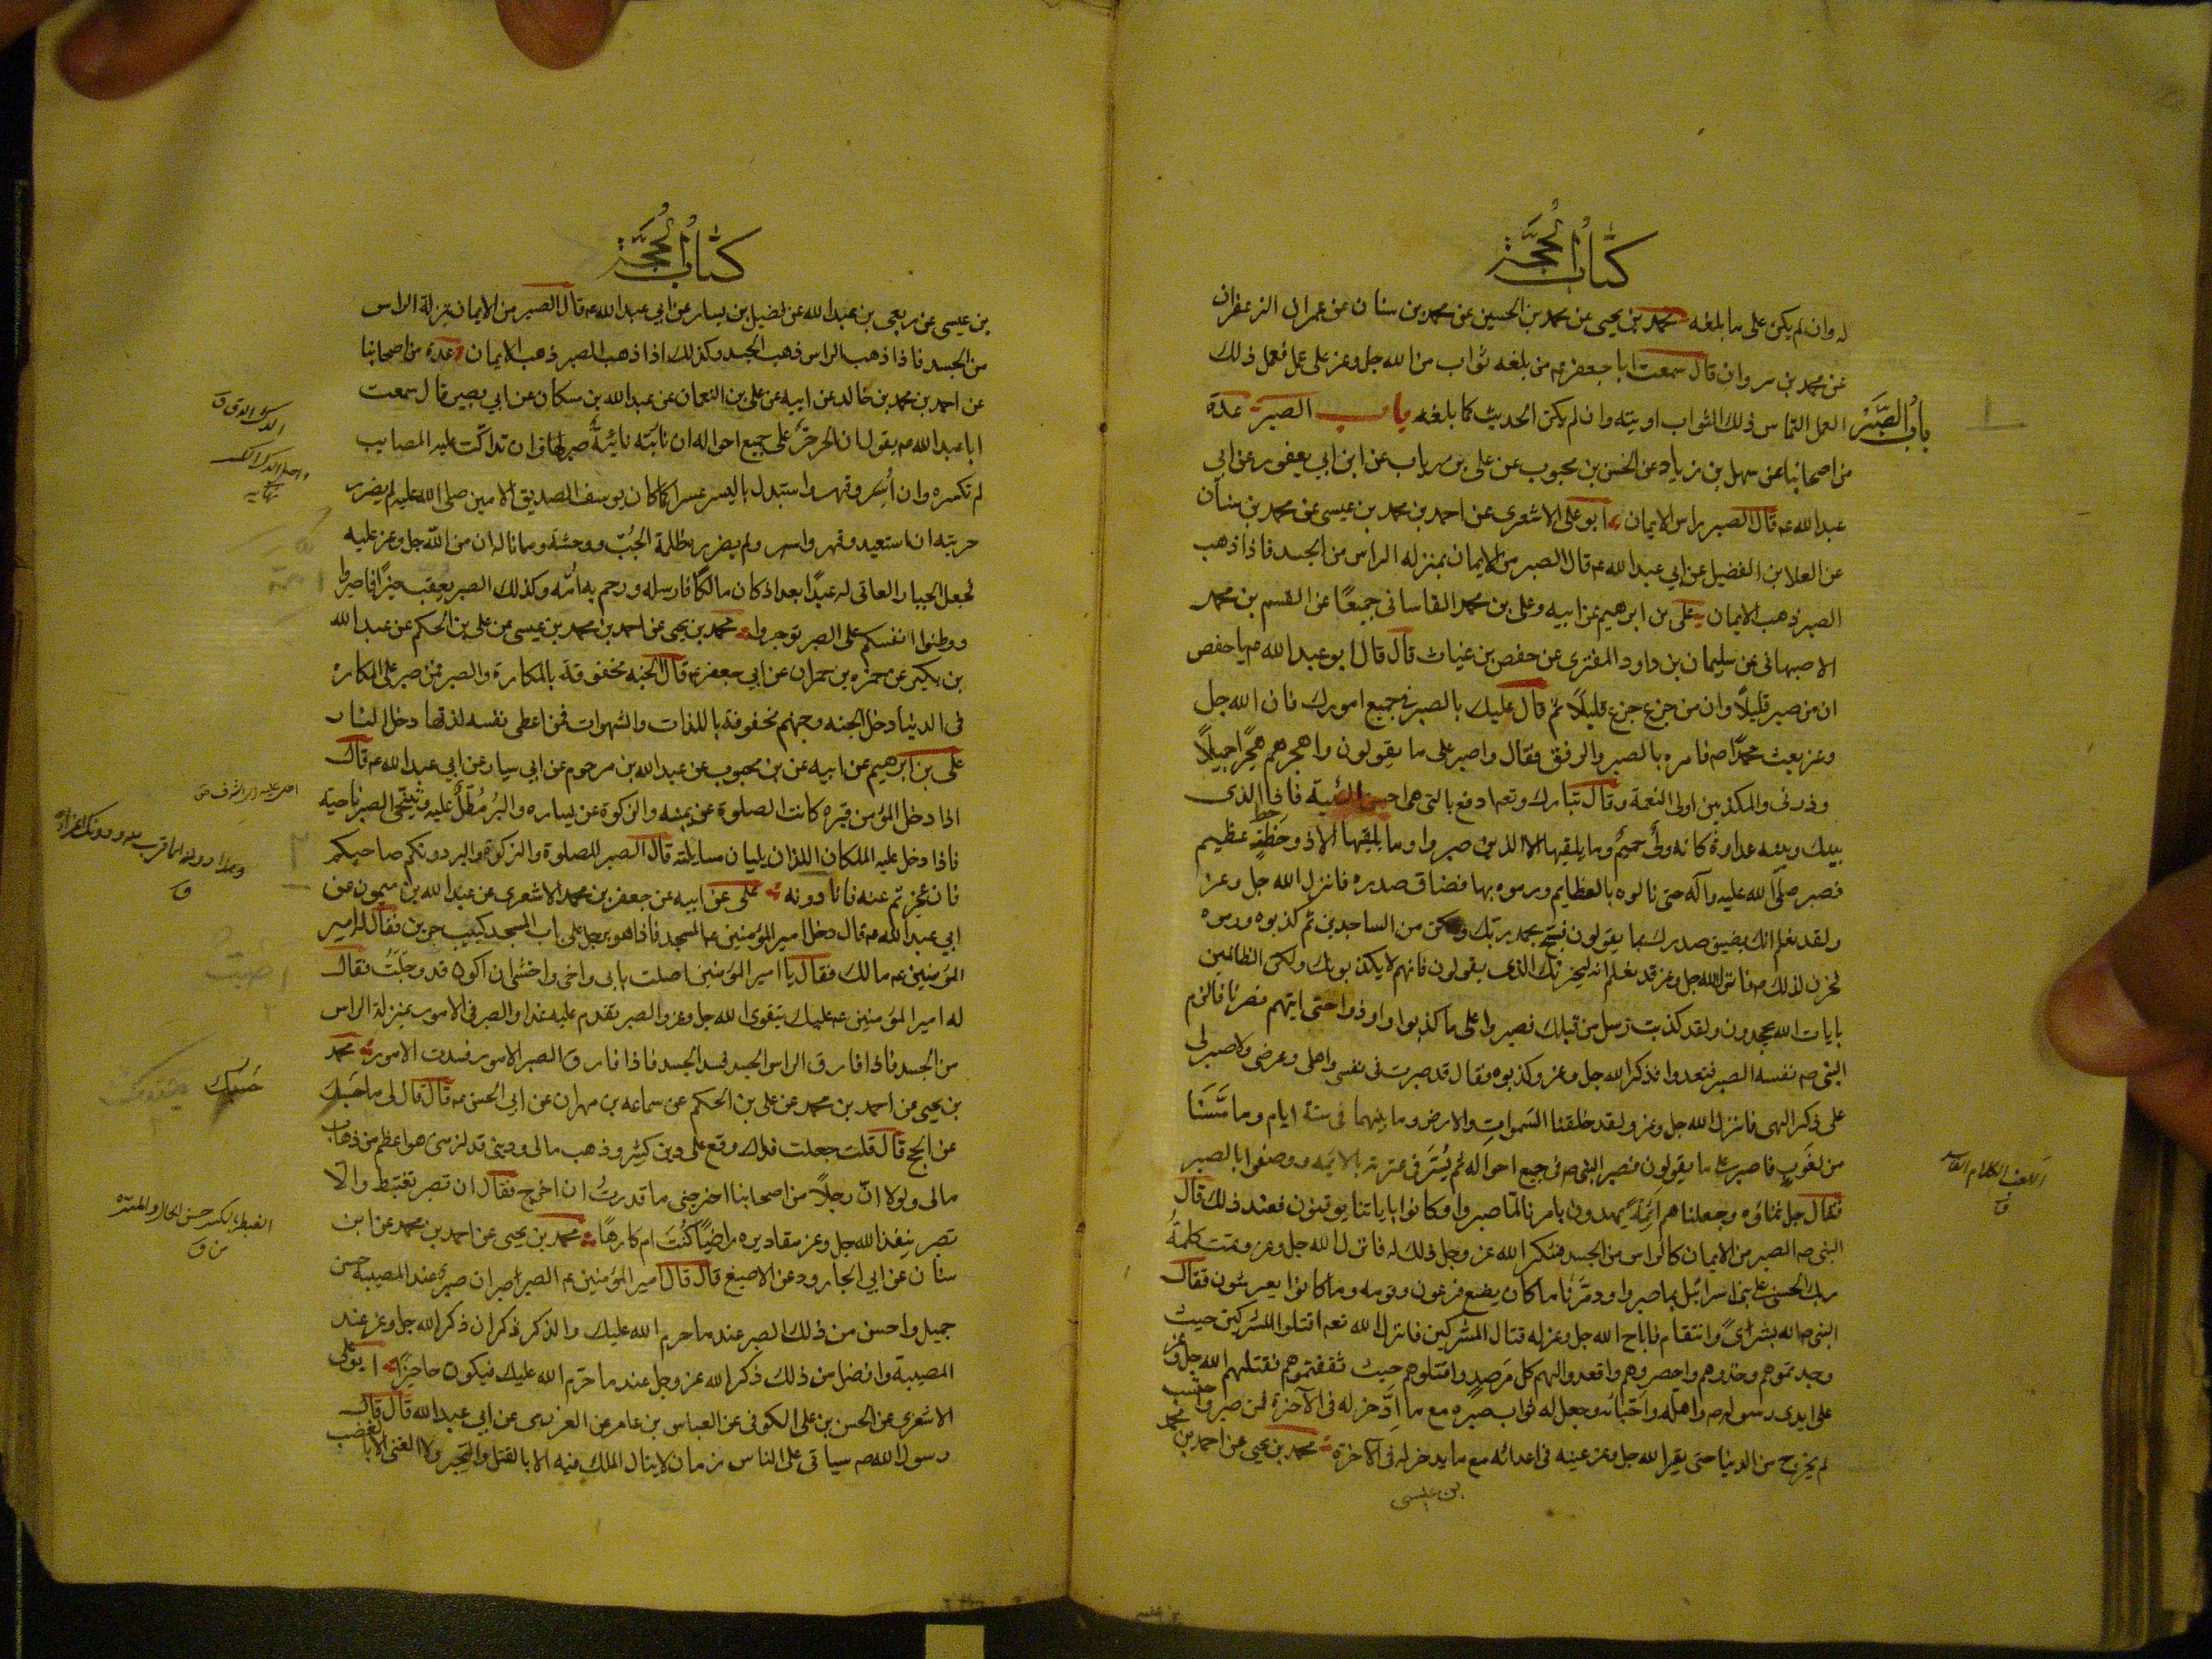 كتاب الحجة
له وان لم يكن على ما بلغه محمد بن يحيى عن محمد بن الحسين عن محمد بن سنان عن عمران الزعفران
عن محمد بن مروان قال سمعت ابا جعفر ع من بلغه ثواب من الله جل وعز على عمل فعمل ذلك
باب الصبر
العمل التماس ذلك الثواب اوتيته وان لم يكن الحديث كما بلغه باب الصبر عدة
من اصحابنا عن سهل بن زياد عن الحسن بن محبوب عن على بن رياب عن ابن ابي يعفور عن ابي
عبد الله ع قال الصبر راس الايمان ابو على الاشعرى عن احمد بن محمد بن عيسى عن محمد بن سنان
عن العلا بن الفضيل عن ابي عبد الله ع قال الصبر من الايمان بمنزله الراس من الجسد فاذا ذهب
الصبر ذهب الايمان على بن ابرهيم عن ابيه وعلى بن محمد القاسانى جميعًا عن القسم بن محمد
الاصبهانى عن سليمان بن داود المنقرى عن حفص بن غياث قال قال ابو عبد الله ع يا حفص
ان من صبر قليلًا وان من جزع جزع قليلًا ثم قال عليك بالصبر فى جميع امورك فان الله جل
وعز بعث محمدًا ص فامره بالصبر والرفق فقال واصبر على ما يقولون واهجرهم هجرًا جميلًا
وذرنى والمكذبين اولى النعمة وقال تبارك وتعه ادفع بالتى هى احسن السيئة فاذا الذى
بينك وبينه عداوة كانه ولىٌّ حميمٌ وما يلقيها الا الذين صبروا وما يلقيها الا ذو حظٍّ عظيم
فصبر صلى الله عليه وآله حتى نالوه بالعظايم ورموه بها فضاق صدره فانزل الله جل وعز
ولقد نعلم انك يضيق صدرك بما يقولون فسبح بحمد ربك وكن من الساجدين ثم كذبوه ورموه
فحزن لذلك فانزل الله جل وعز قد نعلم انه ليحزنك الذى يقولون فانهم لا يكذبونك ولكن الظالمين
بايات الله يجحدون ولقد كذبت رسل من قبلك فصبروا على ما كذبوا واوذوا حتى ايتهم نصرنا فالزم
النبى ص نفسه الصبر فتعدوا فذكر الله جل وعز وكذبوه فقال قد صبرت فى نفسى واهلى وعرضى ولا صبر لى
على ذكر الهى فانزل الله جل وعز ولقد خلقنا السموات والارض وما بينهما فى ستة ايام وما مسّنا
من لغوب فاصبر على ما يقولون فصبر النبى ص فى جميع احواله ثم بُشّر فى عترته بالائمه ووصفوا بالصبر
فقال جل ثناؤه وجعلناهم ائِمةً يهدون بامرنا لمّا صبروا وكانوا باياتنا يوقنون فعند ذلك قال
النبى ص الصبر من الايمان كالراس من الجسد فشكر الله عز وجل ذلك له فانزل الله جل وعز وتمت كلمةُ
ربك الحسنى على بنى اسرائيل بما صبروا ودمّرنا ما كان يصنع فرعون وقومه وما كانوا يعرشون فقال
النبى ص انه بشرىً وانتقام فاباح الله جل وعز له قتال المشركين فانزل الله نعم اقتلوا المشركين حيث
وجدتموهم وخذوهم واحصروهم واقعدوا لهم كل مرصدٍ واقتلوهم حيث ثقفتموهم فقتلهم الله جل وعز
على ايدى رسول الله ص واهله واحبائه وجعل له ثواب صبره مع ما ادّخر له فى الآخرة فمن صبر واحتسب
لم يخرج من الدنيا حتى يقر الله جل وعز عينه فى اعدائه مع ما يدخر له فى الآخرة محمد بن يحيى عن احمد بن محمد
بن عيسى
كتاب الحجة
بن عيسى عن ربعى بن عبد الله عن فضيل بن يسار عن ابي عبد الله ع قال الصبر من الايمان بمنزلة الراس
من الجسد فاذا ذهب الراس ذهب الجسد وكذلك اذا ذهب الصبر ذهب الايمان عدة من اصحابنا
عن احمد بن محمد بن خالد عن ابيه عن على بن النعمان عن عبد الله بن مسكان عن ابي بصير قال سمعت
ابا عبد الله ع يقول ان الحر حرٌّ على جميع احواله ان نابته نائبةٌ صبر لها وان تداكّت عليه المصايب
لم تكسره وان اُسِر وقهر واستبدل باليسر عسرا كما كان يوسف الصديق الامين صلى الله عليه لم يضرر
حريته ان استعبد وقهر واسر ولم يضرره ظلمة الجُبّ ووحشته وما ناله ان من الله جل وعز عليه
فجعل الجبار العاتى له عبدًا بعد اذ كان مالكًا فارسله ورحم به امّه وكذلك الصبر يُعقب خيرًا فاصبروا
ووطنوا انفسكم على الصبر توجروا محمد بن يحيى عن احمد بن محمد بن عيسى عن على بن الحكم عن عبد الله
بن بكير عن حمزه بن حمران عن ابي جعفر ع قال الجنه محفوفة بالمكارة والصبر فمن صبر على المكاره
فى الدنيا دخل الجنه وجهنم محفوفة باللذات والشهوات فمن اعطى نفسه لذتها دخل النار
على بن ابرهيم عن ابيه عن بن محبوب عن عبد الله بن مرحوم عن ابي سيار عن ابي عبد الله ع قال
اذا دخل المؤمن قبره كانت الصلوة عن يمينه والزكوة عن يساره والبرّ مُطلٌّ عليه ويتنحى الصبر ناحية
فاذا دخل عليه الملكان اللذان يليان مسايلته قال الصبر للصلوة والزكوة والبر دونكم صاحبكم
فان عجزتم عنه فانا دونه على عن ابيه عن جعفر بن محمد الاشعرى عن عبد الله بن ميمون عن
ابي عبد الله ع قال دخل امير المؤمنين ع المسجد فاذا هو برجل على باب المسجد كييب حزين فقال له امير
المؤمنين ع مالك فقال يا امير المؤمنين اصلت بابى واخى واخشى ان اكون قد وجلتُ فقال
له امير المؤمنين ع عليك بتقوى الله جل وعز والصبر تقدم عليه غدا والصبر فى الامور بمنزلة الراس
من الجسد فاذا فارق الراس الجسد فسد الجسد فاذا فارق الصبر الامور فسدت الامور محمد
بن يحيى عن احمد بن محمد عن على بن الحكم عن سماعه بن مهران عن ابي الحسن ع قال قال لى ما حبسك
عن الحج قال قلت جعلت فداك وقع على دين كثير وذهب مالى ودينى قد لزمنى هو اعظم من ذهاب
مالى ولولا انّ رجلًا من اصحابنا اخرجنى ما قدرتُ ان اخرج فقال ان تصبر تغتبط والّا
تصبر ينفذ الله جل وعز مقاديره راضيًا كُنتَ ام كارهًا محمد بن يحيى عن احمد بن محمد عن ابن
سنان عن ابي الجارود عن الاصبغ قال قال امير المؤمنين ع الصبر صبران صبر عند المصيبة حسن
جميل واحسن من ذلك الصبر عند ما حرم الله عليك والذكر ذكران ذكر الله جل وعز عند
المصيبة وافضل من ذلك ذكر الله عز وجل عند ما حرّم الله عليك فيكون حاجزًا ابو على
الاشعرى عن الحسن بن على الكوفى عن العباس بن عامر عن العرزمى عن ابي عبد الله قال قال
رسول الله ص سياتى على الناس زمان لا ينال الملك فيه الا بالقتل والتجبر ولا الغنى الا بالغصب
الدك الدق ق
حَبَسَك